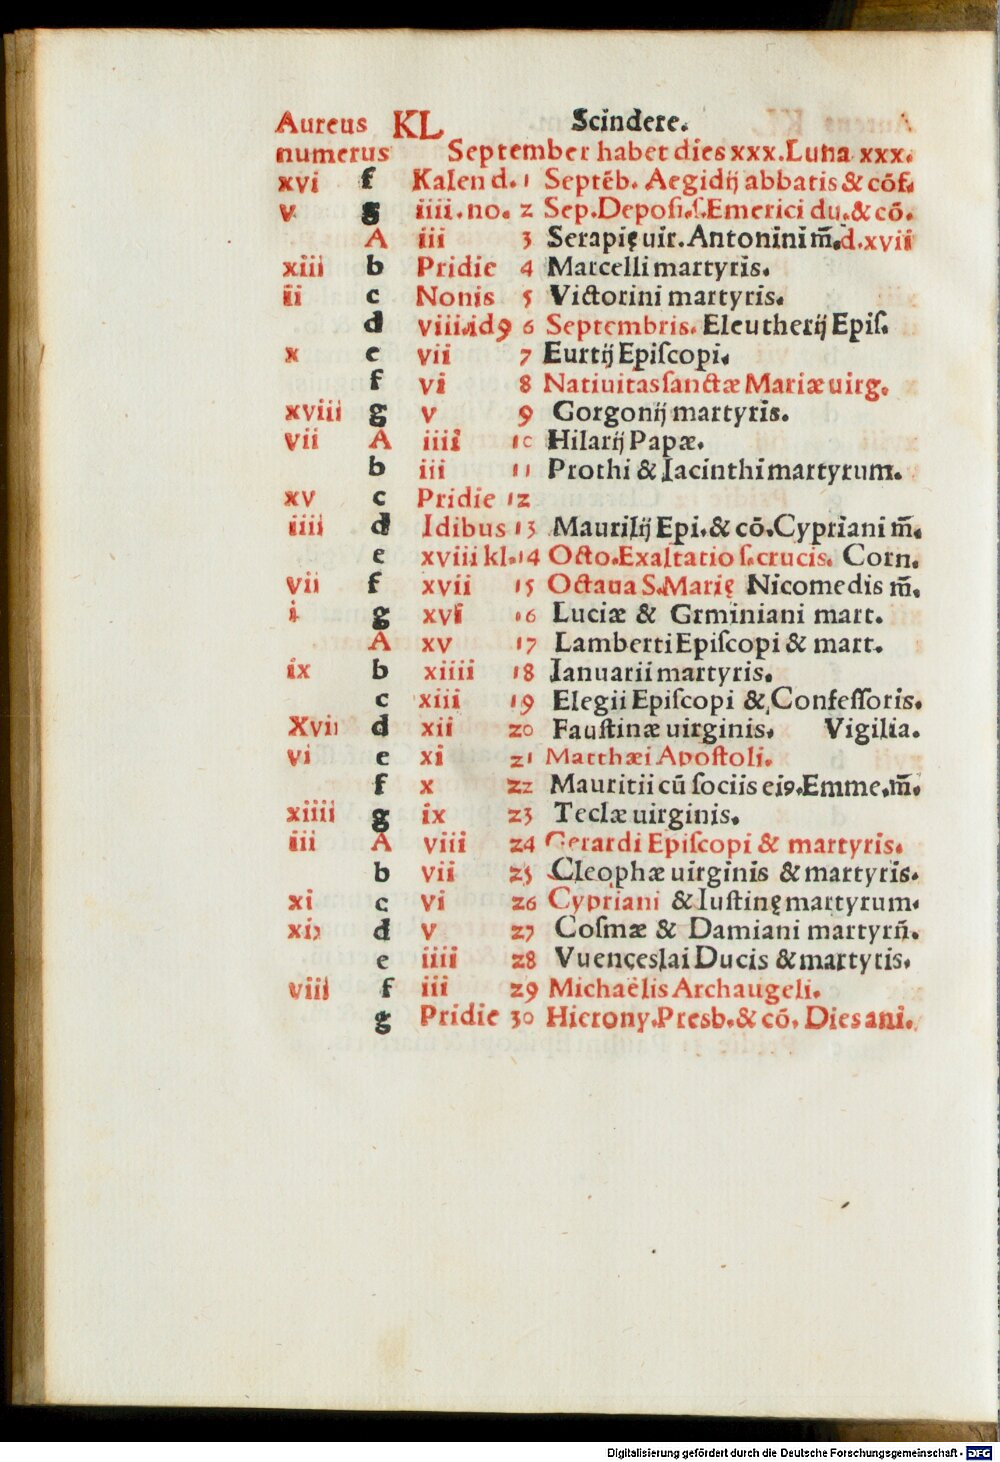 Aureus KL Scindere.
numerus September habet dies xxx. Luna xxx.
xvi f Kalend. 1 Septēb. Aegidij abbatis & cōf.
v g iiii. no. 2 Sep. Deposi. s. Emerici du. & cō.
A iii 3 Serapię uir. Antonini m̄. d. xvii
xiii b Pridie 4 Marcelli martyris.
ii c Nonis 5 Victorini martyris.
d viii. idꝰ 6 Septembris. Eleutherij Epiſ.
x e vii 7 Eurtij Epiſcopi.
f vi 8 Natiuitas ſanctæ Mariæ uirg.
xviii g v 9 Gorgonij martyris.
vii A iiii 10 Hilarij Papæ.
b iii 11 Prothi & Iacinthi martyrum.
xv c Pridie 12
iiii d Idibus 13 Maurilij Epi. & cō. Cypriani m̄.
e xviii kl. 14 Octo. Exaltatio ſ. crucis. Corn.
vii f xvii 15 Octaua S. Marię Nicomedis m̄.
i g xvi 16 Luciæ & Grminiani mart.
A xv 17 Lamberti Epiſcopi & mart.
ix b xiiii 18 Ianuarii martyris.
c xiii 19 Elegii Epiſcopi & Confeſſoris.
Xvii d xii 20 Fauſtinæ uirginis. Vigilia.
vi e xi 21 Matthæi Apoſtoli.
f x 22 Mauritii cū ſociis eiꝰ. Emme. m̄.
xiiii g ix 23 Teclæ uirginis.
iii A viii 24 Gerardi Epiſcopi & martyris.
b vii 25 Cleophæ uirginis & martyris.
xi c vi 26 Cypriani & Iuſtinę martyrum.
d v 27 Coſmæ & Damiani martyrū.
e iiii 28 Vuenceslai Ducis & martyris.
viii f iii 29 Michaëlis Archaugeli.
g Pridie 30 Hierony. Presb. & cō. Dies ani.
Digitalisierung gefördert durch die Deutsche Forschungsgemeinschaft - DFG